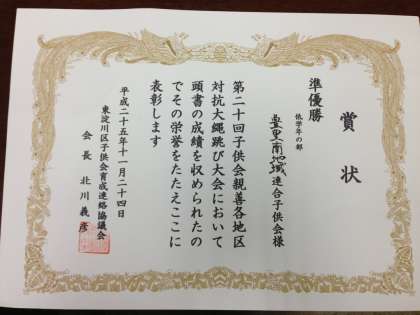 賞状
準優勝
低学年の部
豊里南地域連合子供会様
第二十回子供会親善各地区
対抗大縄跳び大会において
頭書の成績を収められたの
でその栄誉をたたえここに
表彰します
平成二十五年十一月二十四日
東淀川区子供会育成連絡協議会
会長 北川義彦